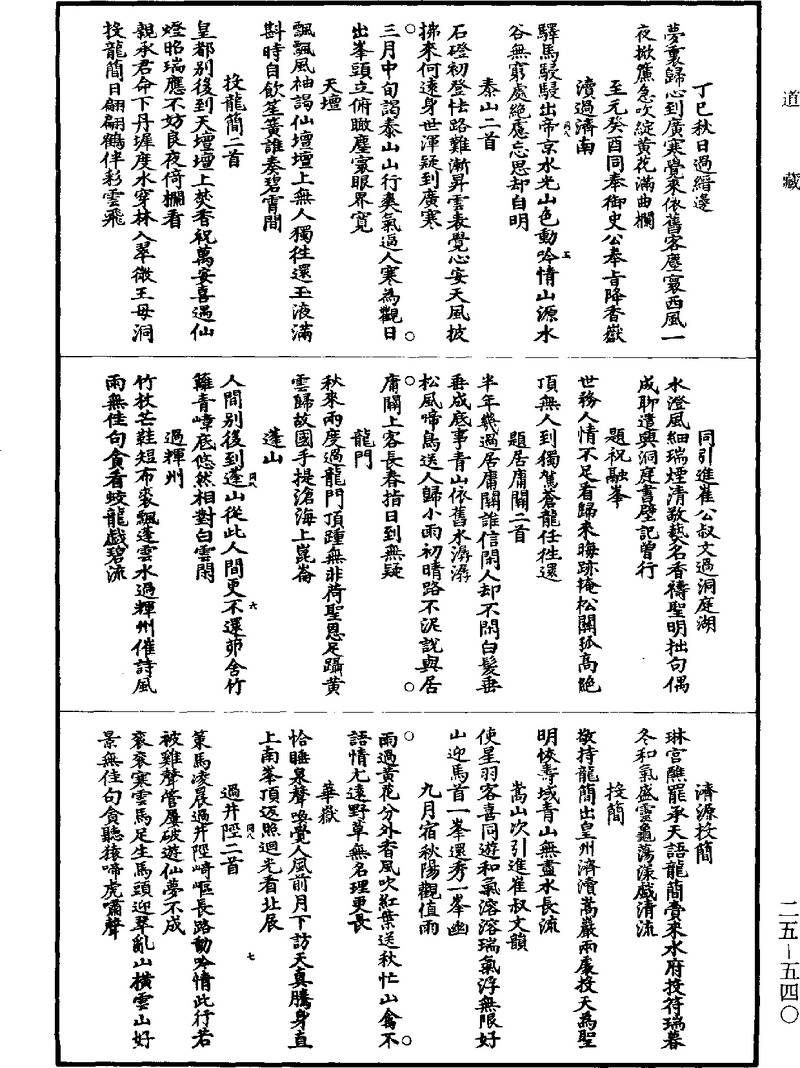 道藏
丁巳秋日過緇邊
夢裏歸心到廣寒覺來依舊客塵寰西風一
夜掀簾急吹綻黃花滿曲欄
至元癸酉同奉御史公奉旨降香嶽
瀆過濟南
驛馬駸駸出帝京水光山色動吟情山源水
谷無窮處絕慮忘思却自明
泰山二首
石磴初登怯路難漸昇雲表覺心安天風披
拂來何遠身世渾疑到廣寒
三月中旬謁泰山山行爽氣逼人寒為觀日
出峯頭立俯瞰塵寰眼界寬
天壇
飄飄風袖謁仙壇壇上無人獨往還玉液滿
斟時自飲笙簧誰奏碧霄間
投龍簡二首
皇都別後到天壇壇上焚香祝萬安喜遇仙
燈昭瑞應不妨良夜倚欄看
親承君命下丹墀度水穿林入翠微王母洞
投龍簡日翩翩鶴伴彩雲飛
同引進崔公叔文過洞庭湖
水澄風細瑞煙清敬爇名香禱聖明拙句偶
成聊遣興洞庭書壁記曾行
題祝融峯
世務人情不足看歸來晦跡掩松關孤高絕
頂無人到獨駕蒼龍任往還
題居庸關二首
半年幾過居庸關誰信閑人却不閑白髮垂
垂成底事青山依舊水潺潺
松風啼鳥送人歸小雨初晴路不泥說與居
庸關上客長春指日到無疑
龍門
秋來兩度過龍門頂踵無非荷聖恩足躡黃
雲歸故國手提滄海上崑崙
蓬山
人間別後到蓬山從此人間更不還茆舍竹
籬青嶂底悠然相對白雲閑
過輝州
竹杖芒鞋短布裘飄蓬雲水過輝州催詩風
雨無佳句貪看蛟龍戲碧流
濟源投簡
琳宮醮罷承天語龍簡賷來水府投符瑞暮
冬和氣盛靈龜蕩漾戲清流
投簡
敬持龍簡出皇州濟瀆嵩巖兩處投天為聖
明恢壽域青山無盡水長流
嵩山次引進崔叔文韻
使星羽客喜同遊和氣溶溶瑞氣浮無限好
山迎馬首一峯還秀一峯幽
九月宿秋陽觀值雨
雨過黃花分外香風吹紅葉送秋忙山禽不
語情尤遠野草無名理更長
華嶽
恰睡泉聲喚覺人風前月下訪天真騰身直
上南峯頂返照迴光看北辰
過井陘二首
策馬凌晨過井陘崎嶇長路動吟情此行若
被雞聲管屢破遊仙夢不成
衮衮寒雲馬足生馬頭迎翠亂山橫雲山好
景無佳句貪聽猿啼虎嘯聲
二五-五四〇